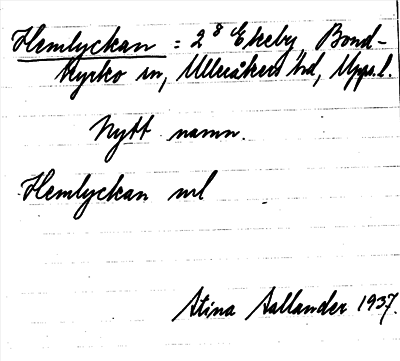 Hemlyckan = 2⁸ Ekeby, Bond-
kyrko sn, Ulleråkers hd, Upps. l.
Nytt namn.
Hemlyckan
Stina Sallander 1937.